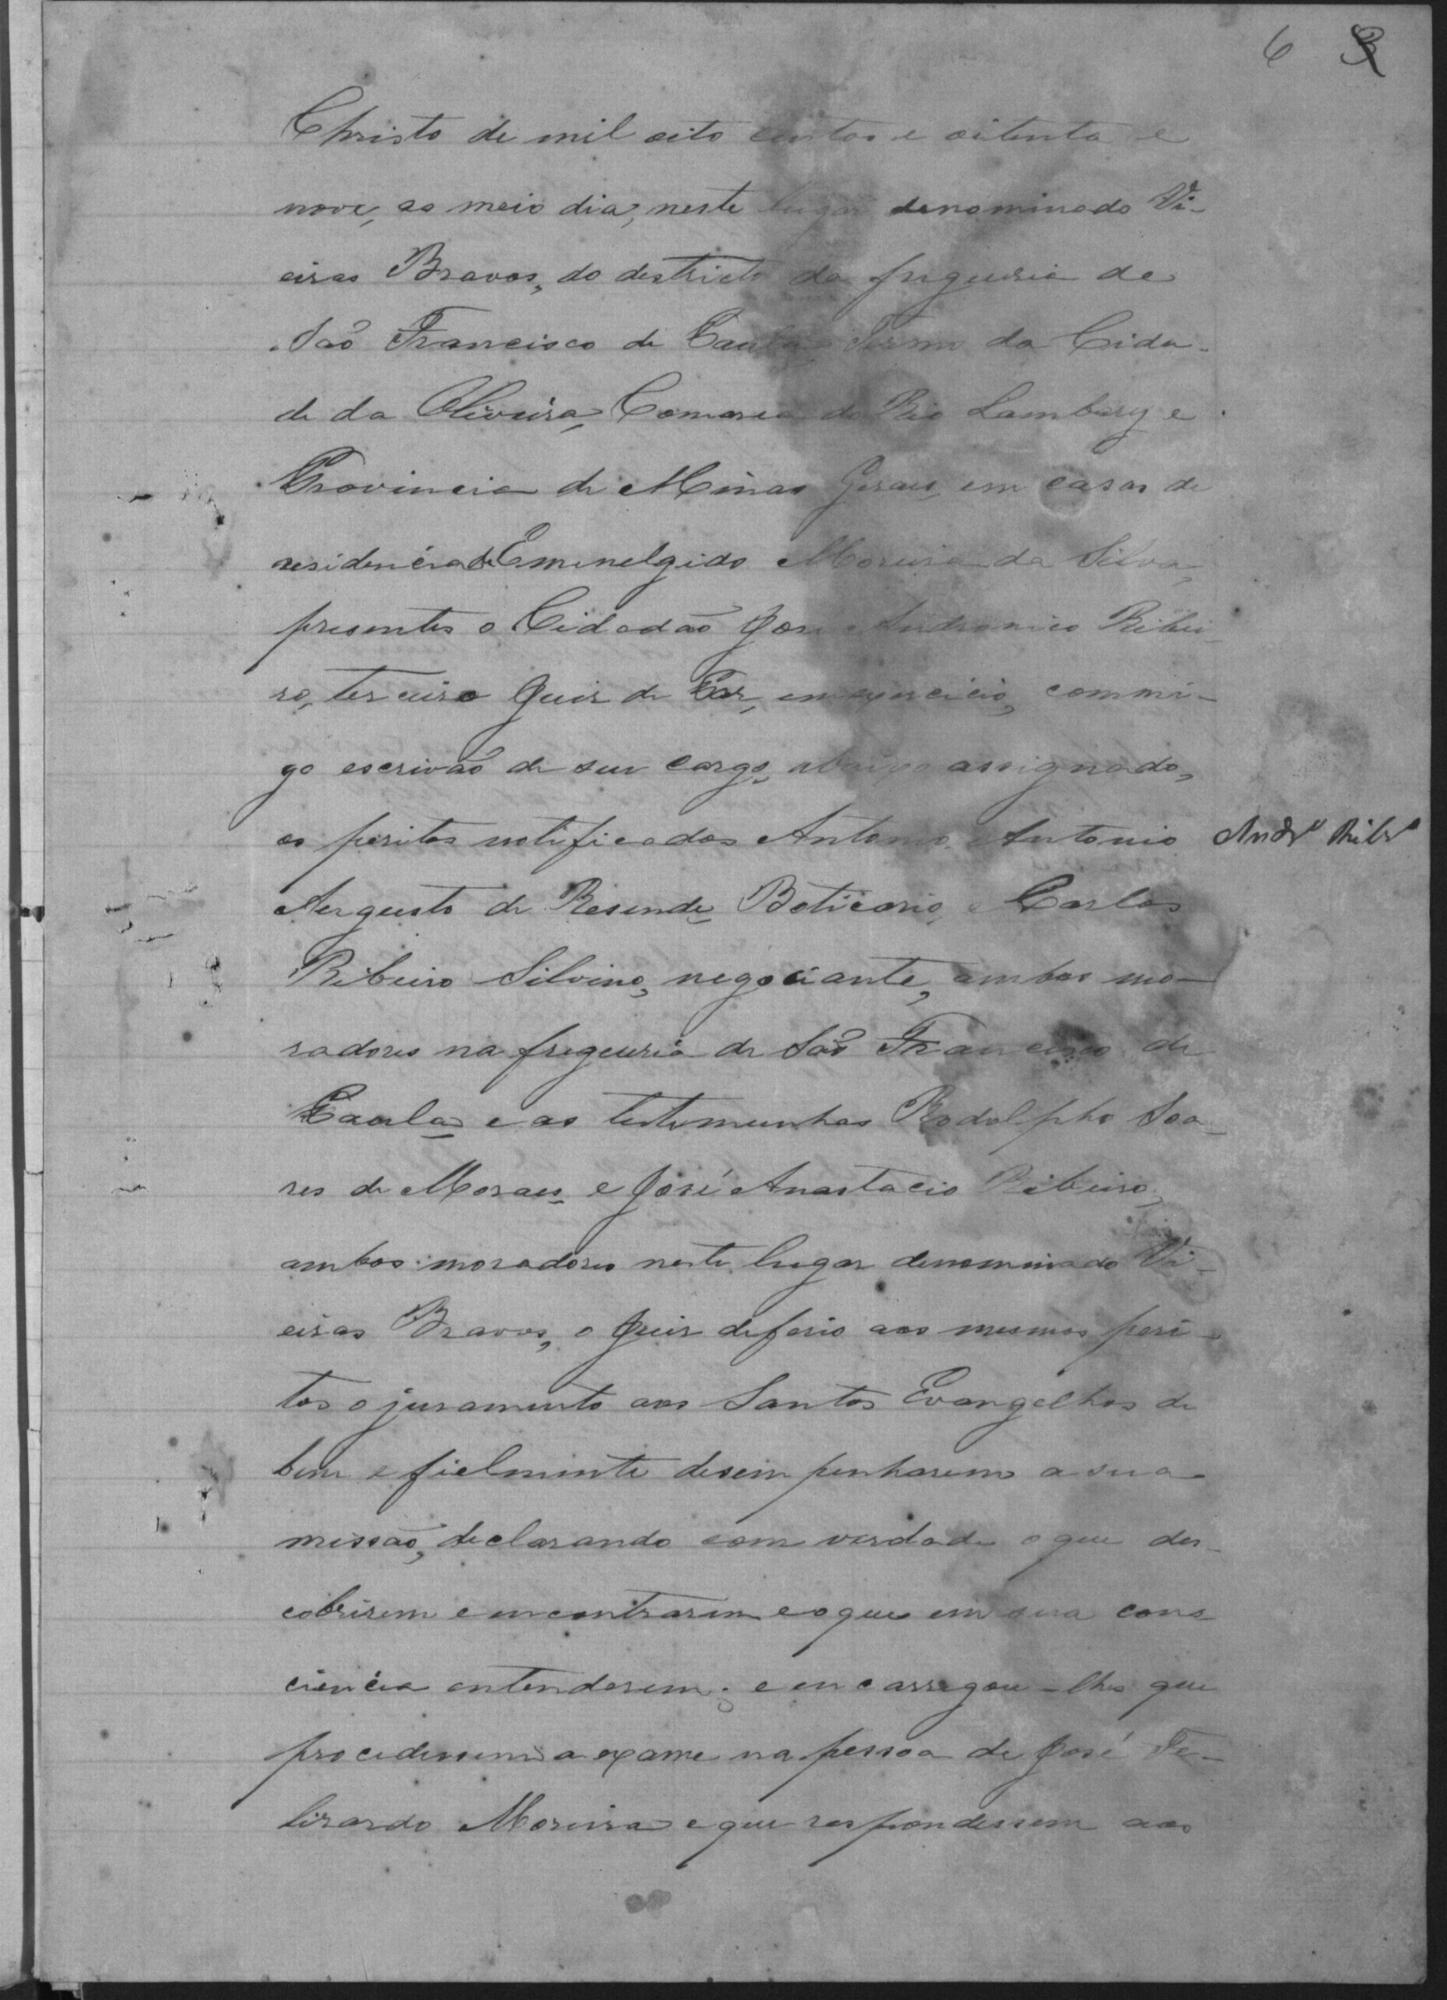 6
Christo de mil oito centos e oitenta e
nove, ao meio dia, neste lugar denominado Vi-
eiras Bravos, do destricto da freguesia de
São Francisco de Paula, Termo da Cida-
de da Oliveira, Comarca do Rio Lambary e
Provincia de Minas Geraes, em casas de
residencia de Emenelgido Moreira da Silva,
presentes o Cidadão José Andronico Ribei-
ro, terceiro Juis de Paz, em exercicio, commi-
go escrivão de seu cargo, abaixo assignado,
os peritos notificados Antonio Antonio
Augusto de Resende, Boticario, e Carlos
Ribeiro Silvino, negociante, ambos mo-
radores na freguesia de São Francisco de
Paula e as testemunhas Rodolpho Soa-
res de Moraes e José Anastacio Ribeiro,
ambos moradores neste lugar denominado Vi-
eiras Bravos, o Juis deferio aos mesmos peri-
tos o juramento aos Santos Evangelhos de
bem e fielmente desempenharem a sua
missão, declarando com verdade o que des-
cobrirem e encontrarem e o que em sua cons
ciencia entenderem; e encarregou-lhes que
procedessem a exame na pessoa de José Fe-
lizardo Moreira e que respondessem aos